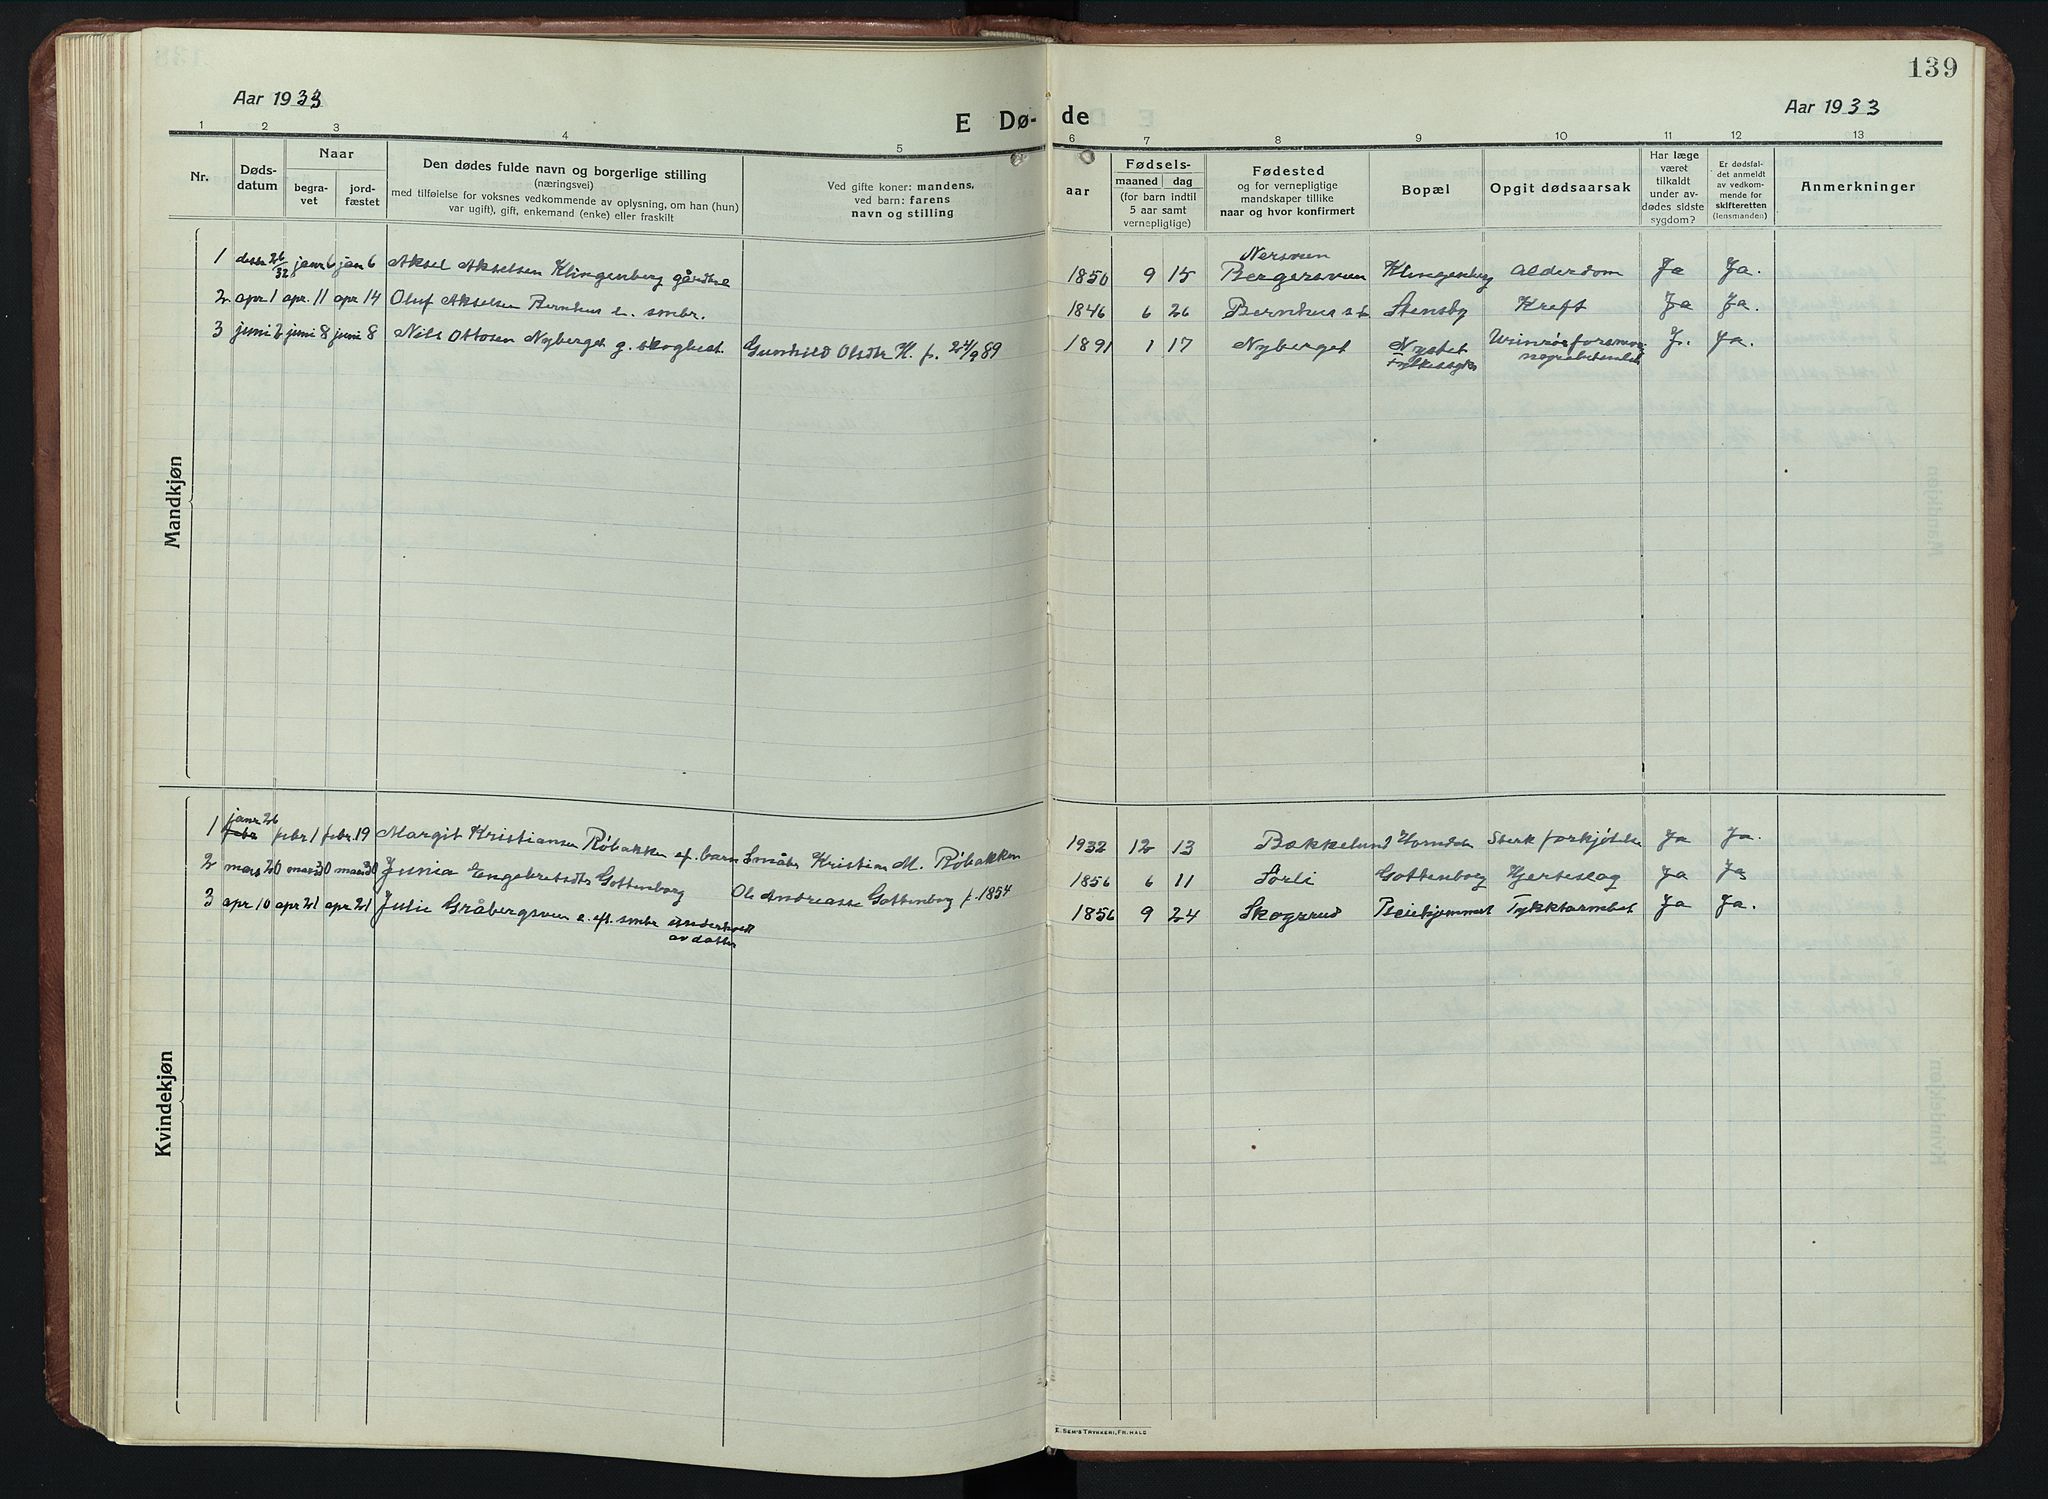 139
Aar 1933
Aar 1933
E Dø-de
1 2 3 4 5 6 7 8 9 10 11 12 13
Nr.
Døds-
datum
Naar
begra-
vet
jord-
fæstet
Den dødes fulde navn og borgerlige stilling
(næringsvei)
med tilføielse for voksnes vedkommende av oplysning, om han (hun)
var ugift), gift, enkemand (enke) eller fraskilt
Ved gifte koner: mandens,
ved barn: farens
navn og stilling
aar
Fødsels-
maaned dag
(for barn indtil
5 aar samt
vernepligtige)
Fødested
og for vernepligtige
mandskaper tillike
naar og hvor konfirmert
Bopæl
Opgit dødsaarsak
Har læge
været
tilkaldt
under av-
dødes sidste
sygdom?
Er dødsfal-
det anmeldt
av vedkom-
mende for
skifteretten
(lensmanden)
Anmerkninger
Mandkjøn
Nersveen
1 desbr 26/32 janr 6 jan 6 Aksel Akselsen Klingenberg 1850 9 15 Bergersveen Klingenberg Alderdom Ja Ja.
2 apr 1 apr. 11 apr 14 Oluf Akselsen Bernhus e. smbr. 1846 6 26 Bernhus Stensby Kreft Ja Ja.
3 juni 2 juni 8 juni 8 Nils Ottosen Nyberget g. Gunhild Olsdtr H. f. 24/9 89 1891 1 17 Nyberget Nystet J. Ja.
Kvindekjøn
janr 26
1 febr febr 1 febr. 19 Margit Kristiansen Røbakken ef. barn Småbr Kristian M. Røbakken 1932 12 13 Bækkelund Homdal Sterk forkjølelse Ja Ja.
2 mars 20 mars 30 mars 30 Junia Engebretsdtr Gottenborg Ole Andreassen Gottenborg f. 1854 1856 6 11 Sørli Gottenborg Hjerteslag Ja Ja
3 apr 10 apr 21 apr 21 Julie Gråbergsveen e. eft. smbr underholdt 1856 9 24 Skogsrud Pleiehjemmet Ja Ja.
av datter
E. SEM'S TRYKKERI, FR.HALD